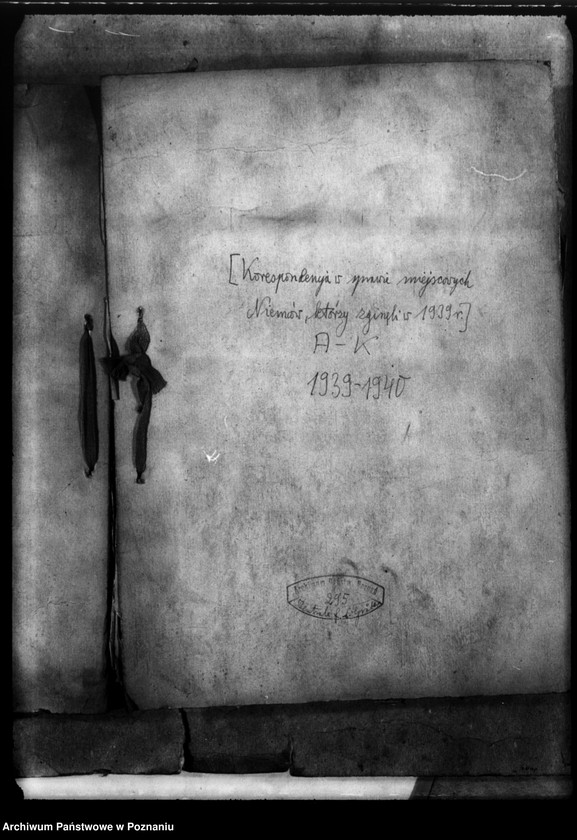 [Korespondencja w sprawie miejscowych
Niemców, którzy zginęli w 1939 r.]
A-K
1939-1940
295
Archiwum Państwowe w Poznaniu